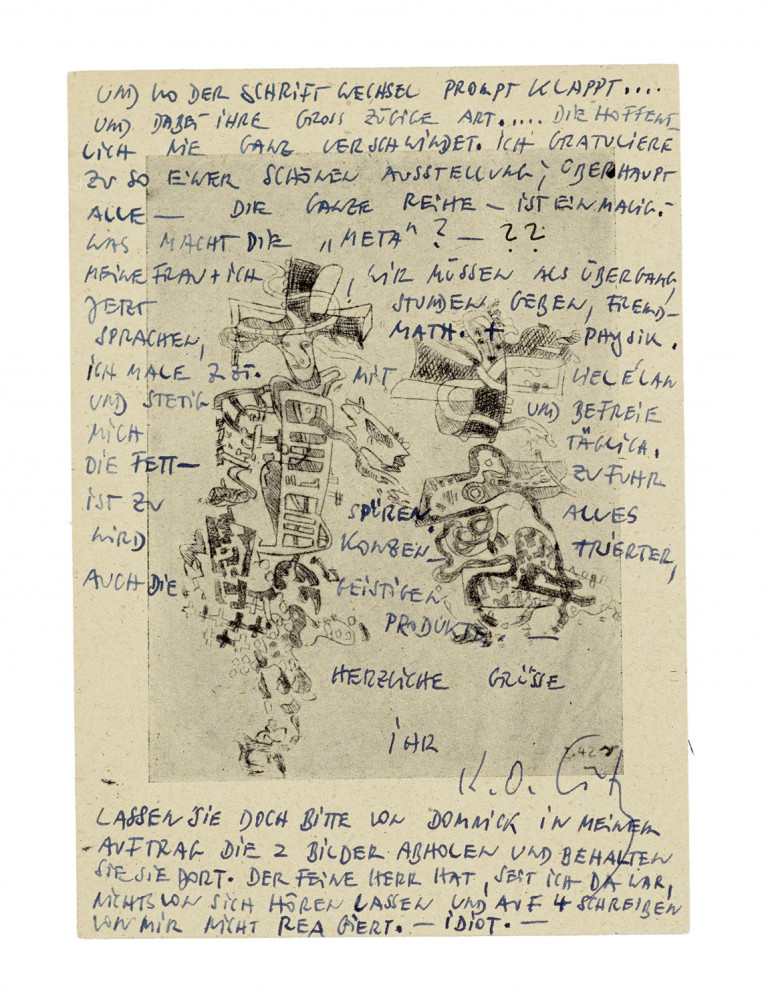 UND WO DER SCHRIFTWECHSEL PROMPT KLAPPT....
UND DABEI IHRE GROSSZÜGIGE ART..... DIE HOFFENT-
LICH NIE GANZ VERSCHWINDET. ICH GRATULIERE
ZU SO EINER SCHÖNEN AUSSTELLUNG, ÜBERHAUPT
ALLE — DIE GANZE REIHE — IST EINMALIG.-
WAS MACHT DIE „META"? — ??
MEINE FRAU + ICH, WIR MÜSSEN ALS ÜBERGANG,
JETZT STUNDEN GEBEN, FREMD-
SPRACHEN, MATH. + PHYSIK.
ICH MALE Z.ZT. MIT VIEL ÉLAN
UND STETIG UND BEFREIE
MICH TÄGLICH.
DIE FETT- ZUFUHR
IST ZU SPÜREN. ALLES
WIRD KONZEN- TRIERTER,
AUCH DIE GEISTIGEN
PRODUKTE. —
HERZLICHE GRÜSSE
IHR
K.O. Götz
LASSEN SIE DOCH BITTE VON DOMNICK IN MEINEM
AUFTRAG DIE 2 BILDER ABHOLEN UND BEHALTEN
SIE SIE DORT. DER FEINE HERR HAT, SEIT ICH DA WAR,
NICHTS VON SICH HÖREN LASSEN UND AUF 4 SCHREIBEN
VON MIR NICHT REAGIERT. — IDIOT. —